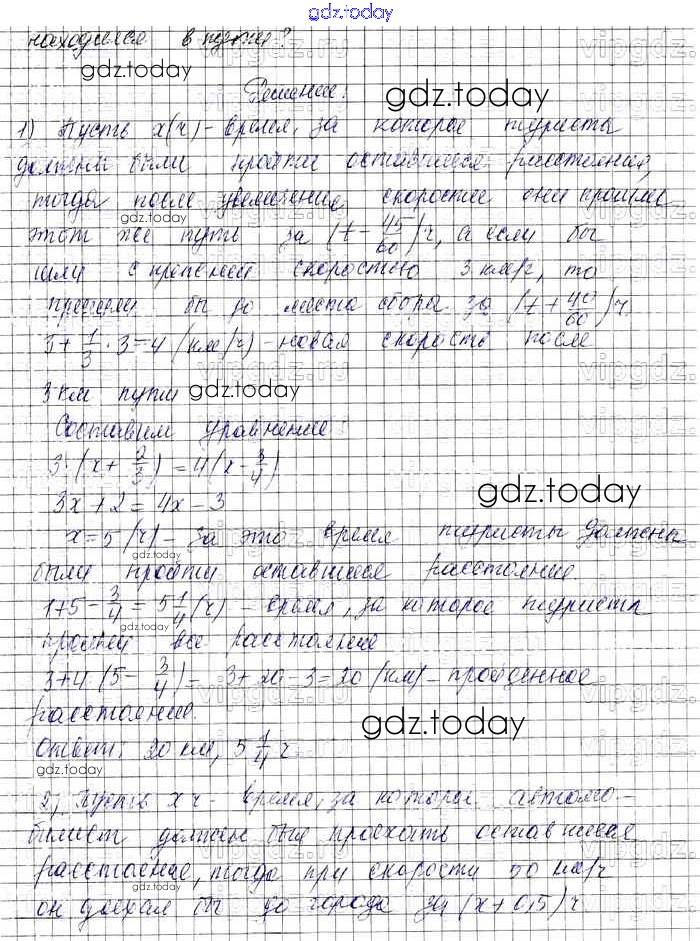 gdz.today
находился в пути?
gdz.today
Решение:
gdz.today
1) Пусть x(ч) - время, за которое туристы
должны были пройти оставшееся расстояние,
тогда после увеличения скорости они прошли
gdz.today
этот же путь за (t - 45/60) ч, а если бы
шли с прежней скоростью 3 км/ч, то
пришли бы до места сбора за (t + 40/60) ч
3 + 1/3 · 3 = 4 (км/ч) - новая скорость после
3 км пути
gdz.today
Составим уравнение:
3 · (x + 2/3) = 4(x - 3/4)
3x + 2 = 4x - 3
gdz.today
x = 5 (ч) - за это время туристы должны
gdz.today
были пройти оставшееся расстояние.
1 + 5 - 3/4 = 5 1/4 (ч) - время, за которое туристы
gdz.today
прошли все расстояние
3 + 4 · (5 - 3/4) = 3 + 20 - 3 = 20 (км) - пройденное
расстояние.
gdz.today
Ответ: 20 км, 5 1/4 ч.
gdz.today
2) Пусть x ч - время, за которое автомо-
билист должен был проехать оставшееся
расстояние, тогда при скорости 50 км/ч
gdz.today
он доехал бы до города за (x + 0,5) ч
vipgdz.ru